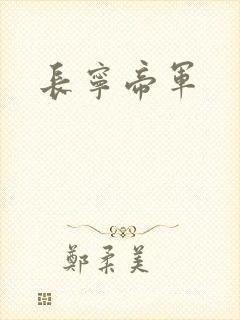 長寧帝軍
鄭柔美